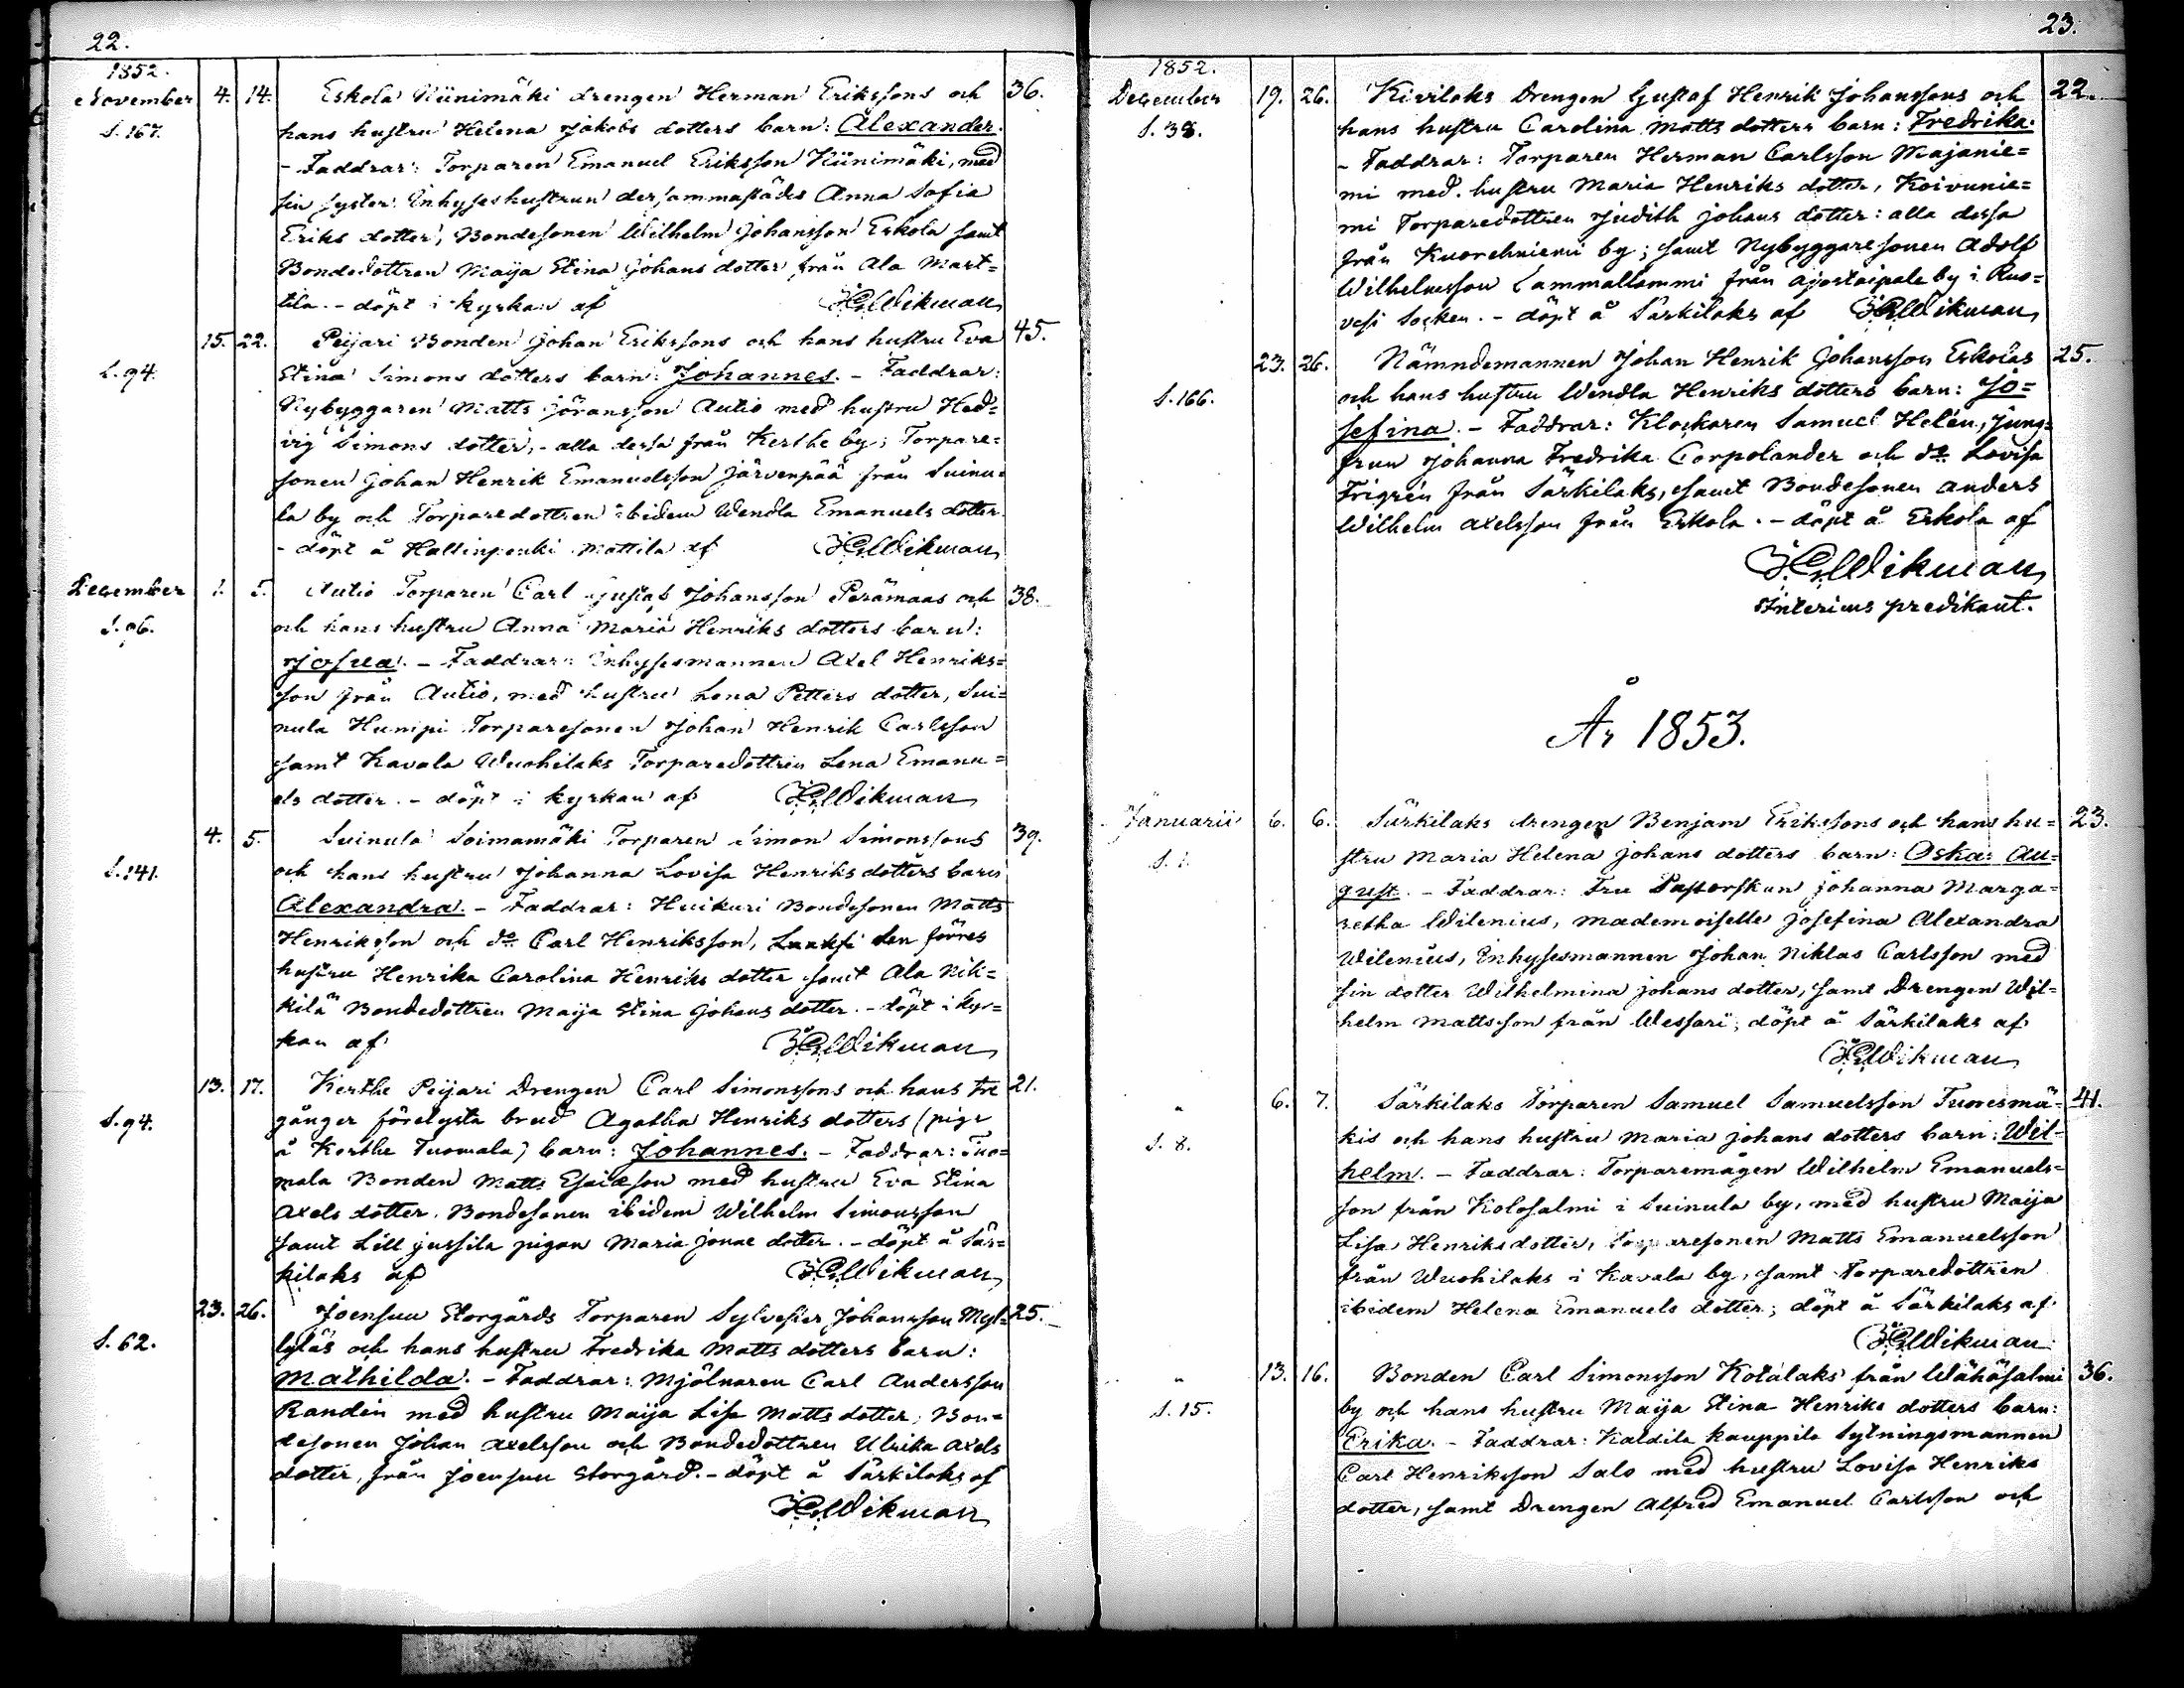 22.
1852.
November 4. 14. Eskola Kiinimäki drengen Herman Erikssons och 36.
S. 167. hans hustru Helena Jakobs dotters barn: Alexander.
- Faddrar: Torparen Emanuel Eriksson Kiinimäki, med
sin syster Inhyseshustrun dersammastädes Anna Sofia
Eriks dotter, Bondesonen Wilhelm Johansson Eskola samt
Bondedottren Maija Stina Johans dotter från Ala Mart=
tila. - döpt i kyrkan af HGWikman
15. 22. Peijari Bonden Johan Erikssons och hans hustru Eva 45.
S. 94. Stina Simons dotters barn: Johannes. - Faddrar:
Nybyggaren Matts Jöransson Autio med hustru Hed=
vig Simons dotter, - alla dessa från Kerthe by; Torpare=
sonen Johan Henrik Emanuelsson Järvenpää från Suinu=
la by och Torparedottren ibidem Wendla Emanuels dotter.
- döpt å Hallinpenki Mattila af HGWikman
December 1. 5. Autio Torparen Carl Gustaf Johansson Perämaas och 38.
S. 96. och hans hustru Anna Maria Henriks dotters barn:
Josua. - Faddrar: Inhysesmannen Axel Henriks=
son från Autio, med hustru Lena Petters dotter, Sui=
nula Humpi Torparesonen Johan Henrik Carlsson
samt Kavala Wuohilaks Torparedottren Lena Emanu=
els dotter. - döpt i kyrkan af HGWikman
4. 5. Suinula Soimamäki Torparen Simon Simonssons 39.
S. 141. och hans hustru Johanna Lovisa Henriks dotters barn
Alexandra. - Faddrar: Huikuri Bondesonen Matts
Henriksson och do Carl Henriksson, den förres
hustru Henrika Carolina Henriks dotter samt Ala Nik=
kilä Bondedottren Maija Stina Johans dotter. - döpt i kyr=
kan af HGWikman
13. 17. Kerthe Peijari Drengen Carl Simonssons och hans tre 21.
S. 94. gånger förelysta brud Agatha Henriks dotters (piga
å Kerthe Tuomala) barn: Johannes. - Faddrar: Tuo=
mala Bonden Matts Esaiasson med hustru Eva Stina
Axels dotter. Bondesonen ibidem Wilhelm Simonsson
samt Lill jussila pigan Maria Jonae dotter. - döpt å Sär=
kilaks af HGWikman
23. 26. Joensuu Storgårds Torparen Sylvester Johansson Myl= 25.
S. 62. lyläs och hans hustru Fredrika Matts dotters barn:
Mathilda. - Faddrar: Mjölnaren Carl Andersson
Randén med hustru Maija Lisa Matts dotter; Bon=
desonen Johan Axelsson och Bondedottren Ulrika Axels
dotter, från Joensuu Storgård. - döpt å Särkilaks af
HGWikman
23.
1852.
December 19. 26. Kivilaks Drengen Gustaf Henrik Johanssons och 22.
S. 38. hans hustru Carolina Matts dotters barn: Fredrika.
- Faddrar: Torparen Herman Carlsson Majanie=
mi med hustru Maria Henriks dotter, Koivunie=
mi Torparedottren Judith Johans dotter: alla dessa
från Kuorehniemi by; samt Nybyggaresonen Adolf
Wilhelmsson Lammallammi från Ajostaipale by i Ruo=
vesi Socken. - döpt å Särkilaks af HGWikman
23. 26. Nämndemannen Johan Henrik Johansson Eskolas 25.
S. 166. och hans hustru Wendla Henriks dotters barn: Jo=
sefina. - Faddrar: Klockaren Samuel Helén, Jung=
frun Johanna Fredrika Corpolander och do Lovisa
Frigrén från Särkilaks, samt Bondesonen Anders
Wilhelm Axelsson från Eskola. - döpt å Eskola af
HGWikman
Interims predikant.
År 1853.
Januarii 6. 6. Särkilaks drengen Benjam Erikssons och hans hu= 23.
S. 1. stru Maria Helena Johans dotters barn: Oskar Au=
gust. - Faddrar: Fru Pastorskan Johanna Marga=
retha Wilenius, mademoiselle Josefina Alexandra
Wilenius, Inhysesmannen Johan Niklas Carlsson med
sin dotter Wilhelmina Johans dotter, samt Drengen Wil=
helm Mattsson från Wessari; döpt å Särkilaks af
HGWikman
" 6. 7. Särkilaks Torparen Samuel Samuelsson Tuoresmä= 41.
S. 8. kis och hans hustru Maria Johans dotters barn: Wil=
helm. - Faddrar: Torparemågen Wilhelm Emanuels=
son från Kolosalmi i Suinula by, med hustru Maija
Lisa Henriksdotter, Torparesonen Matts Emanuelsson
från Wuohilaks i Kavala by, samt Torparedottren
ibidem Helena Emanuels dotter; döpt å Särkilaks af
HGWikman
" 13. 16. Bonden Carl Simonsson Kotalaks från Wähäsalmi 36.
S. 15. by och hans hustru Maija Stina Henriks dotters barn:
Erika. - Faddrar: Kaldila kauppila Sytningsmannen
Carl Henriksson Salo med hustru Lovisa Henriks
dotter, samt Drengen Alfred Emanuel Carlsson och